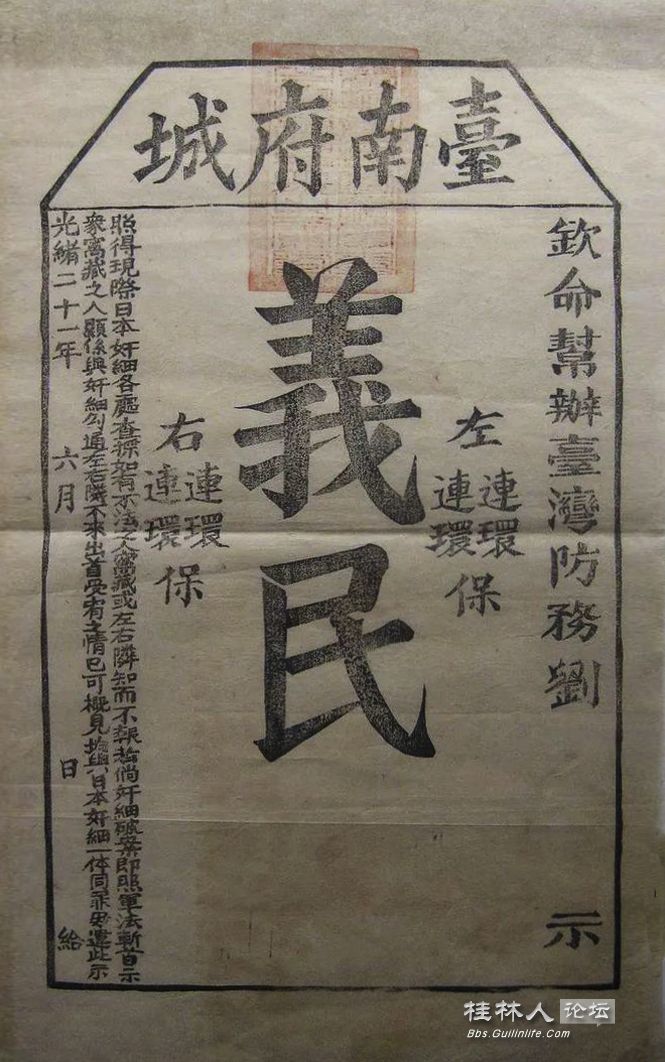 臺南府城
欽命幫辦臺灣防務劉 示
左 連環 連環 保
義民
右 連環 連環 保
照得現際日本奸細各處查探如有不法之人窩藏或左右隣知而不報倘奸細破案即照軍法斬首示
衆窩藏之人顯係與奸細勾通左右隣不來出首受宥之情已可概見均與日本奸細一体同罪毋違此示
光緒二十一年 六月 日 給
桂林人论坛
Bbs.Guilinlife.Com